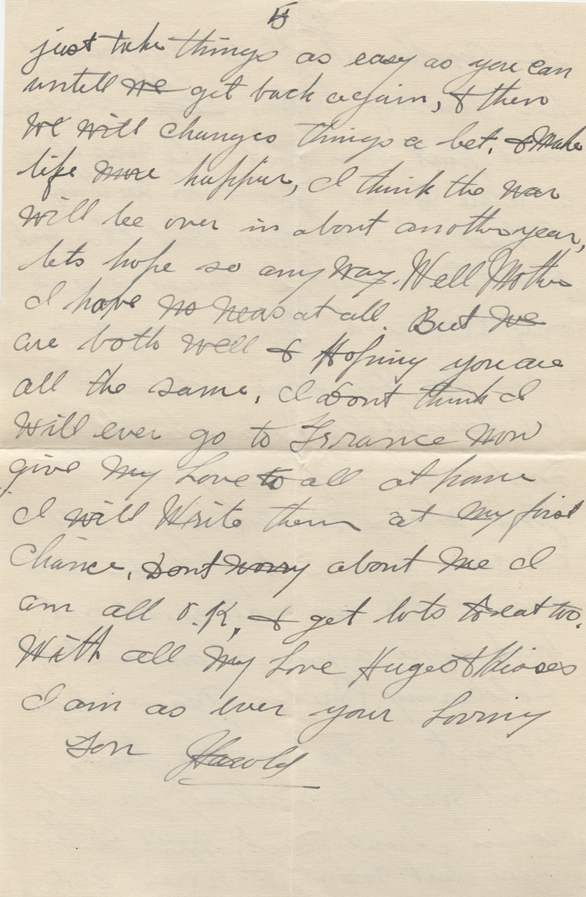 5
just take things as easy as you can
untill we get back again, & then
we will changes things a bet. & Make
life more happier, I think the war
will be over in about another year,
lets hope so any way. Well Mother
I have no news at all. But we
are both well & Hoping you are
all the same. I Dont think I
will ever go to France now
give my Love to all at home
I will Write them at my first
Chance. Dont worry about Me I
am all O.K, & get lots to eat too.
With all my Love Huges & kisses
I am as ever your Loving
Son Harold